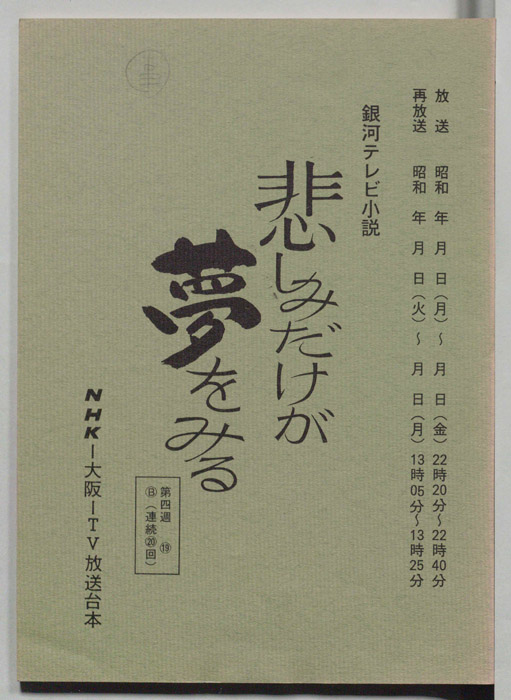 放送　昭和　年　月　日（月）～　月　日（金）22時20分～22時40分
再放送　昭和　年　月　日（火）～　月　日（月）13時05分～13時25分
銀河テレビ小説
悲しみだけが
夢をみる
第四週　⑲
（連続⑳回）
NHK－大阪－TV放送台本